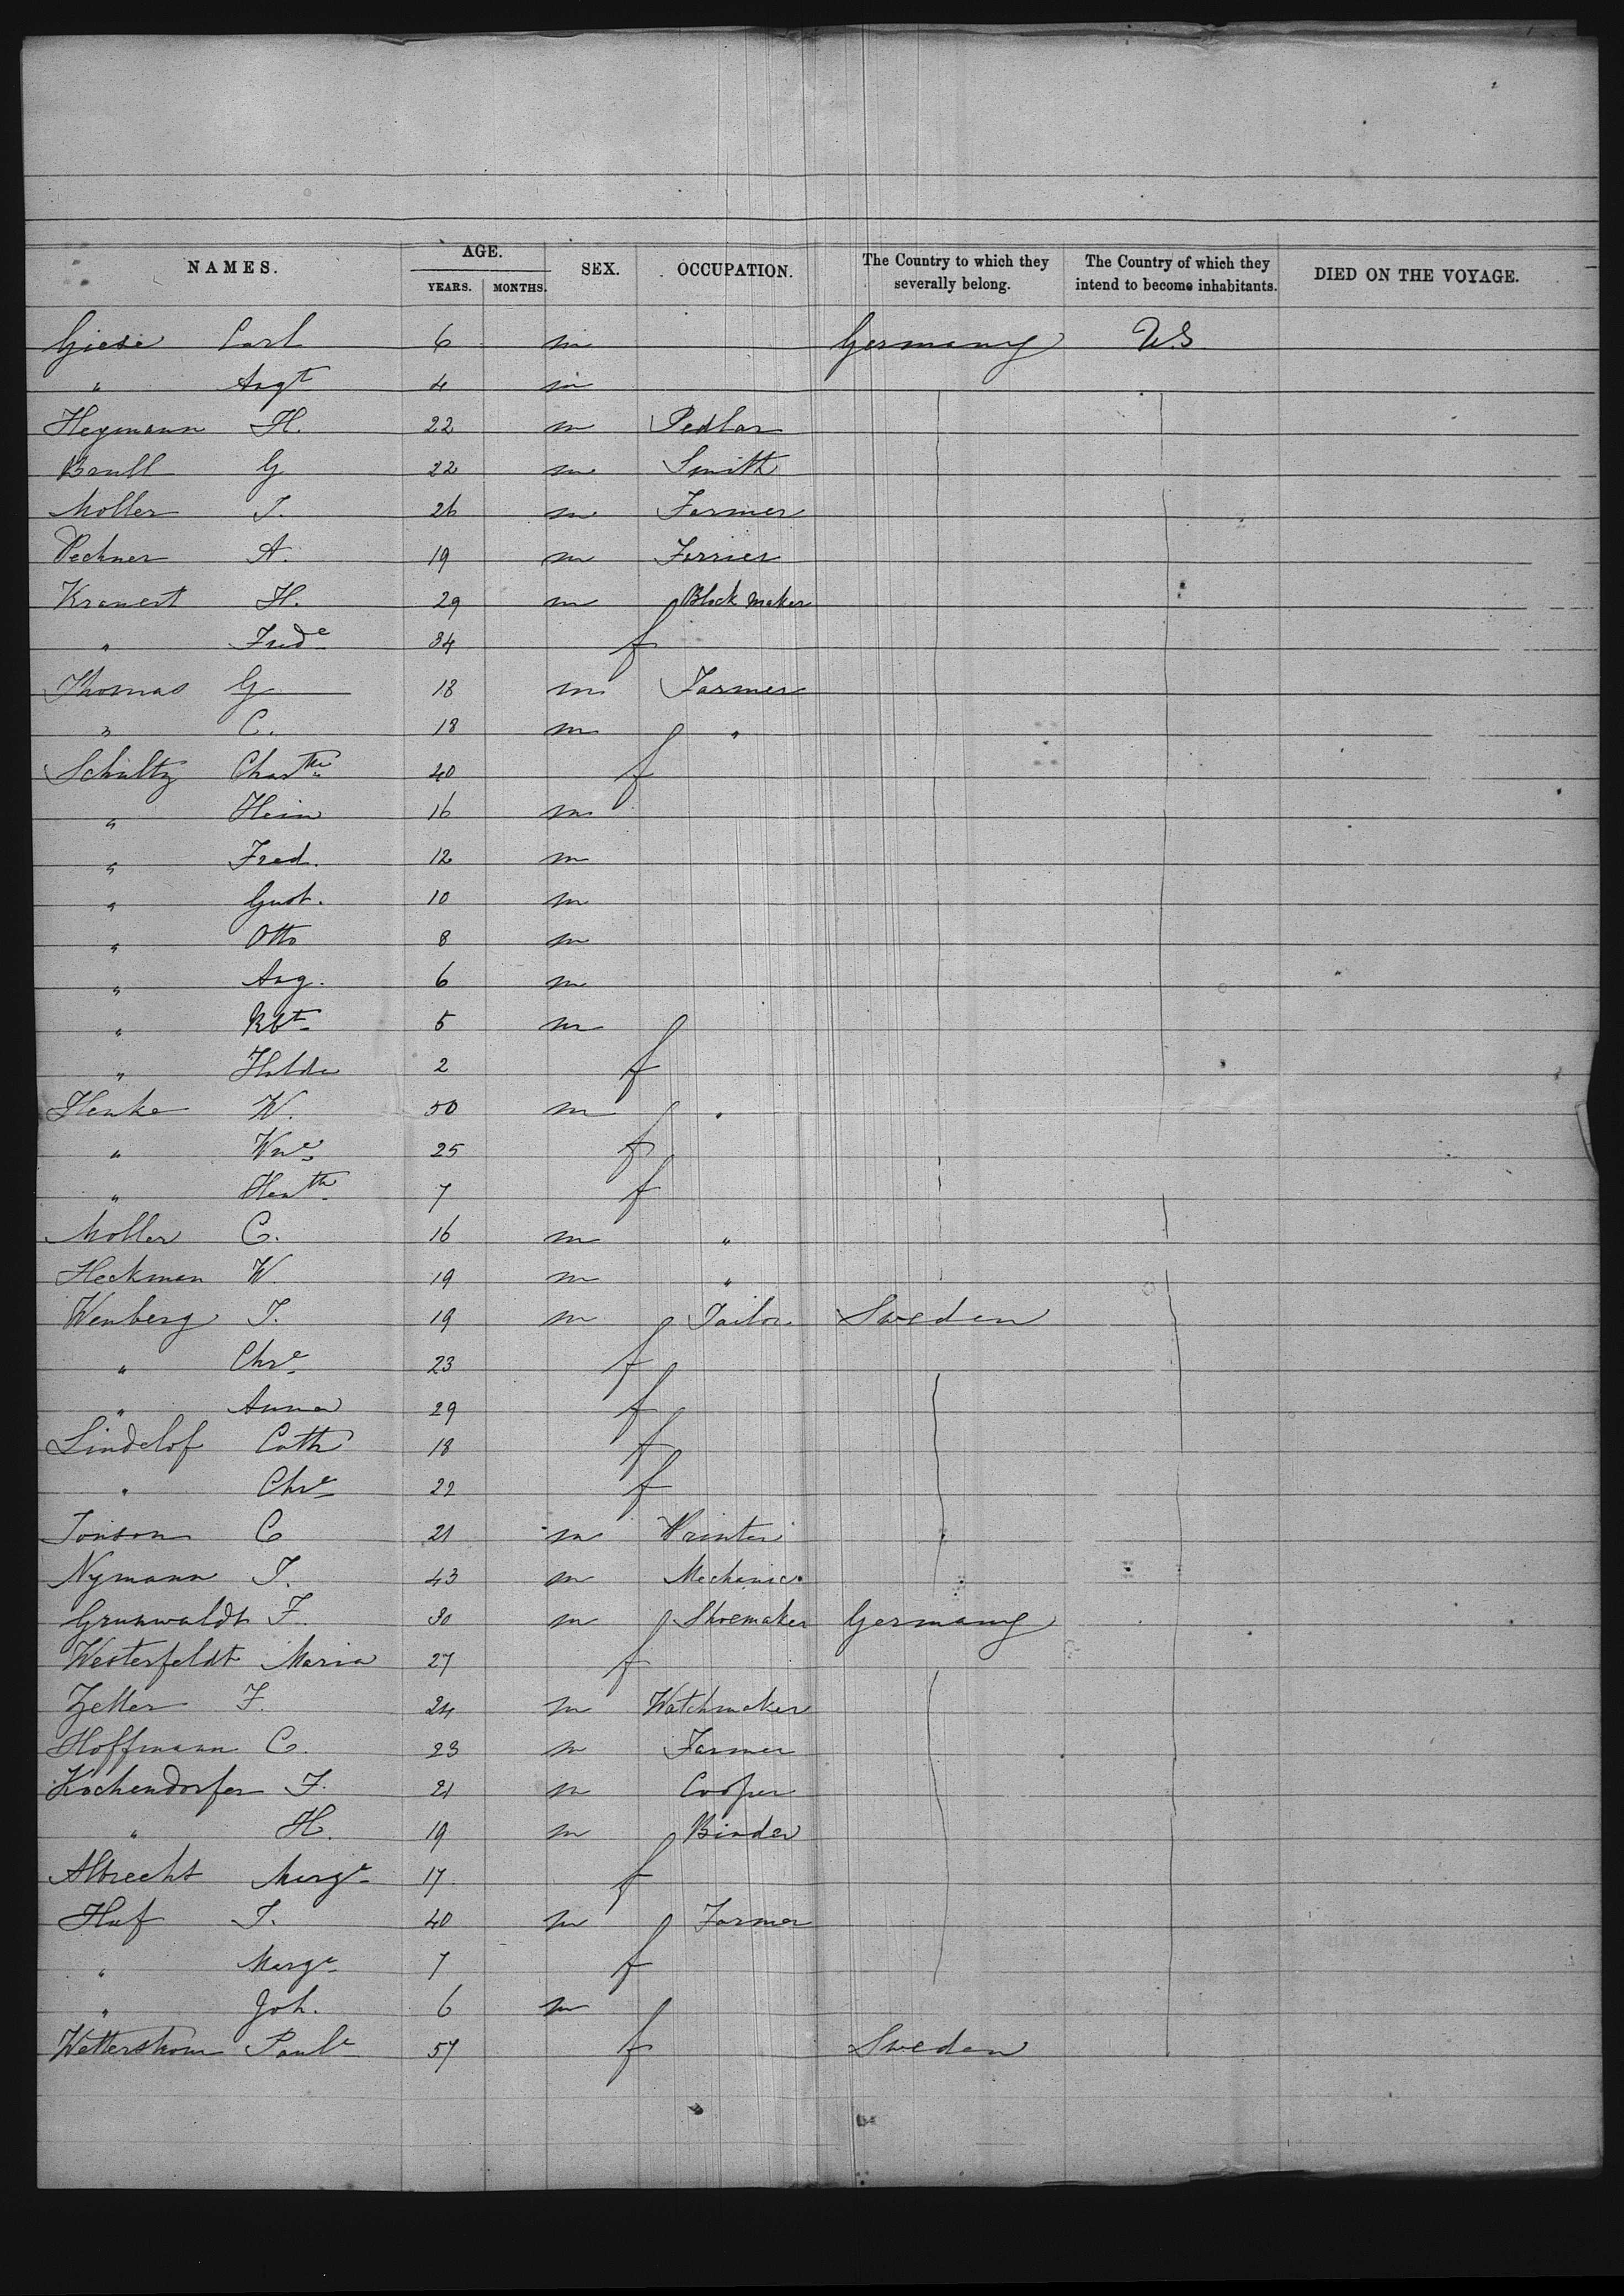 NAMES. AGE. SEX. OCCUPATION. The Country to which they severally belong. The Country of which they intend to become inhabitants. DIED ON THE VOYAGE.
YEARS. MONTHS.
Giese Carl 6 m Germany U.S
" Augt 4 m
Heymann H. 22 m Pedlar
Brull G 22 m Smith
Moller J. 26 m Farmer
Pechner A. 19 m Ferrier
Kranert H. 29 m Block maker
" Frede 34 f
Thomas G 18 m Farmer
" C. 18 m "
Schultz 40 f
" Hein 16 m
" Fred. 12 m
" Gust. 10 m
" Otto 8 m
" Aug. 6 m
" Rbt 5 m
" Hulda 2 f
Henke W. 50 m "
" Wne 25 f
" 7 f
Moller C. 16 m "
Heckman W. 19 m "
Wenberg J. 19 m Tailor Sweden
" Chre 23 f
" Anna 29 f
Lindelof Cath 18 f
" Chre 22 f
Jonson C 21 m Printer
Nymann J. 43 m Mechanic
Grunwaldt F. 30 m Shoemaker Germany
Westerfeldt Maria 27 f
Zeller F. 24 m Watchmaker
Hoffmann C. 23 m Farmer
Kochendorfer F. 21 m Cooper
" H. 19 m Binder
Albrecht Marge 17 f
Huf J. 40 m Farmer
" Marge 7 f
" Joh. 6 m
Paule 57 f Sweden